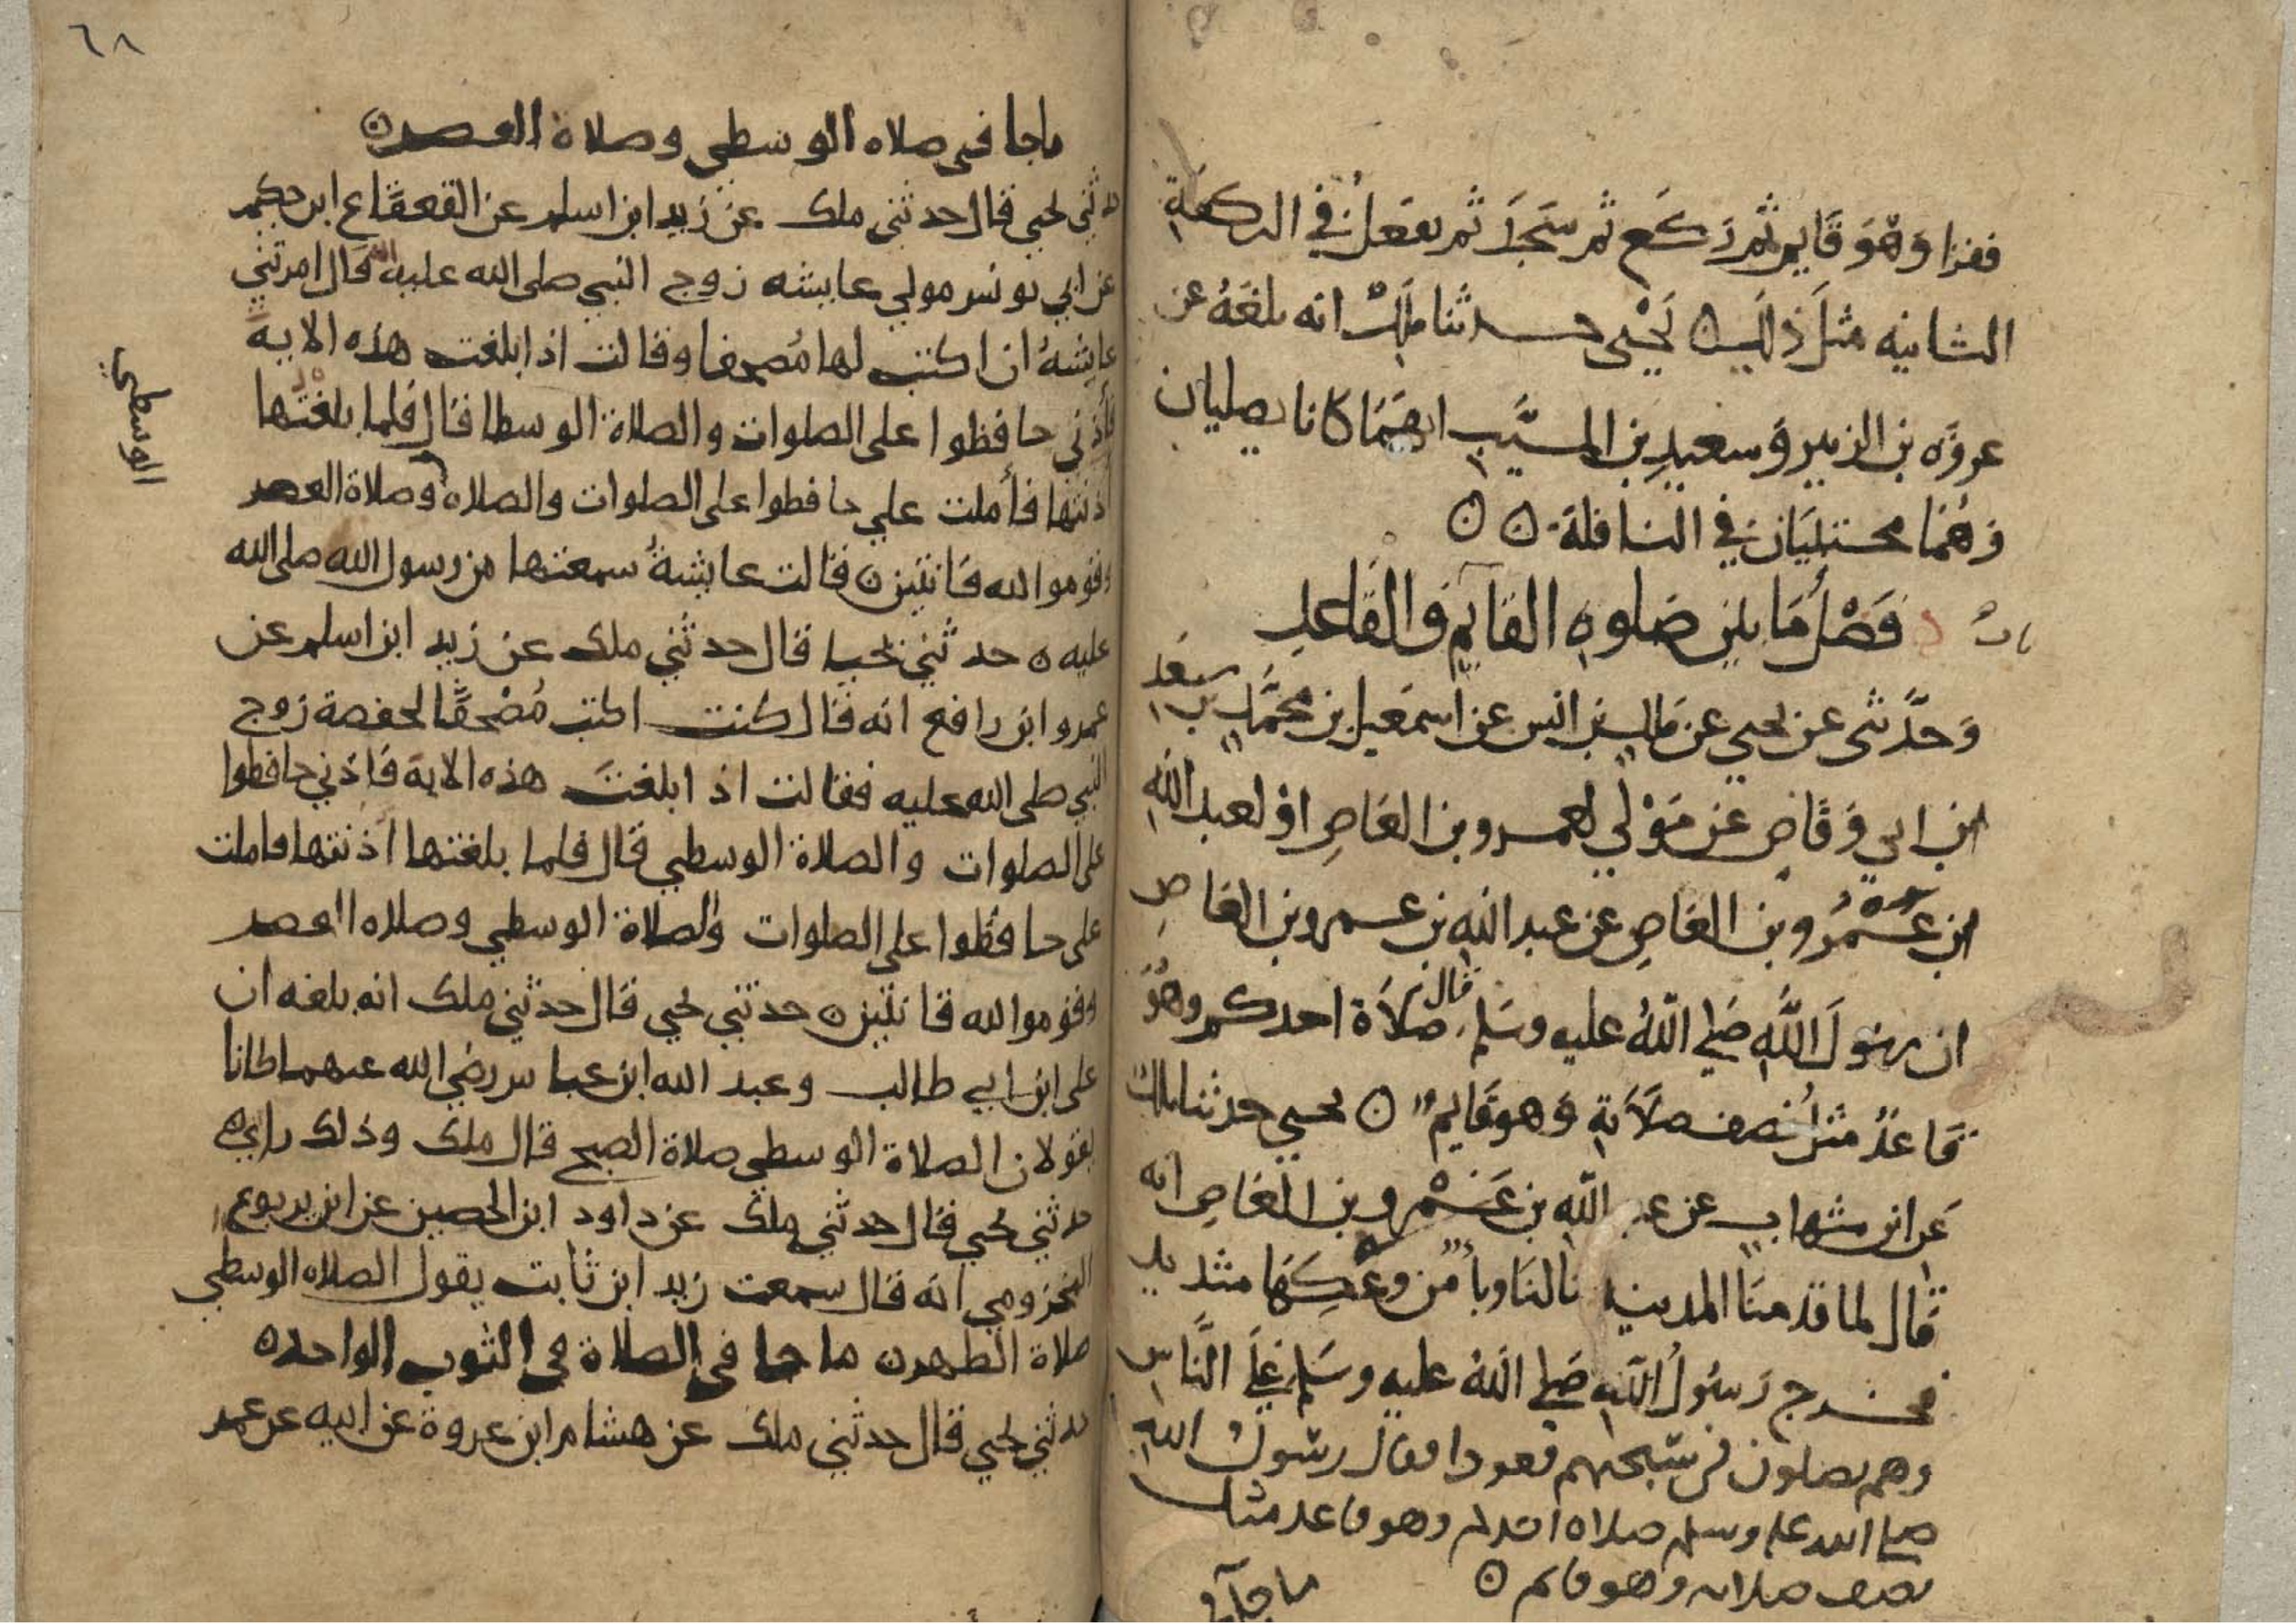 فقرا وَهْوَ قَايم ثم رَكَع ثم سَجَدَ ثم يفعَل في الركعَةِ
الثانيه مثلَ ذلك ۞ يَحْيى حدثنا ملك انه بلغَهُ عن
عروَه بن الزبير وَسعيدِ بن المسيَّب انهما كانا يصليان
وَهُمَا محتبيَان في النافلة ۞ ۞
بابُ فَضْلُ مَا بين صَلوه القايمِ وَالقَاعِدِ
وَحدَّثنى عن يحيى عن مَالك بن انس عن اسمَعيل بن محمَّد بن سَعْد
ابن ابي وَقاص عن مَوْلى لعمرو بن العَاصِ اوْ لعبد الله
ابن عَمْرُو بن العَاصِ عن عبد اللهِ بن عمرو بن العَاصِ
ان رسُولَ اللَّهِ صَلى اللهُ عليه وسَلم قال صَلاَة احدكم وهُوَ
قَاعدٌ مثلُ نصف صلاَتهِ وَهو قَايم ۞ يحيى حدثنا ملك
عَن ابن شهاب عن عبد اللهِ بن عَمْرو بن العَاصِ انه
قال لما قدمنَا المدينه نالنَا وباءٌ من وعكهَا شديد
فخرج رَسُولُ اللَّهِ صَلى اللهُ عليه وسَلم عَلَى النَّاس
وهم يصلون فى سَبحتهم قعودا فقال رسُولُ الله
صلى الله عليه وسلم صلاه القاعد وهو قاعد مثل
نصف صلاته وهو قايم ۞
ما جآ في
٦٨
ماجا في صلاه الوسطى وصلاة العصر ۞
حدثني يحيي قال حدثني ملك عن زيد ابن اسلم عن القعقاع ابن حكيم
عن ابي يونس مولي عايشه زوج النبي صلى الله عليه انه قال امرتني
عايشةُ ان اكتب لها مُصحفا وقالت اذا بلغت هذه الايه
فأذني حافظوا على الصلوات والصلاة الوسطا قال فلما بلغتها
اذنتها فأملت علي حافظوا على الصلوات والصلاه وصلاة العصر
الوسطي
وقوموا لله قانتين ۞ قالت عايشةُ سمعتها من رسول الله صلى الله
عليه ۞ حدثني يحيا قال حدثني ملك عن زيد ابن اسلم عن
عمرو ابن رافع انه قال كنت اكتب مُصْحفًا لحفصة زوج
النبي صلى الله عليه فقالت اذا بلغتَ هذه الاية فَاذني حافظوا
على الصلوات والصلاة الوسطي قال فلما بلغتها اذنتها فاملت
على حافظوا على الصلوات والصلاة الوسطي وصلاه العصر
وقوموا لله قانتين ۞ حدثني يحيي قال حدثني ملك انه بلغه ان
على ابن ابي طالب وعبد الله ابن عباس رضي الله عنهما كانا
يقولان الصلاة الوسطي صلاة الصبح قال ملك وذلك رايي ۞
حدثني يحيي قال حدثني ملك عن داود ابن الحصين عن ابن يربوع
المخزومي انه قال سمعت زيد ابن ثابت يقول الصلاه الوسطي
صلاة الظهر ۞ ما جا في الصلاة في الثوب الواحد ۞
حدثني يحيي قال حدثني ملك عن هشام ابن عروة عن ابيه عن عمر